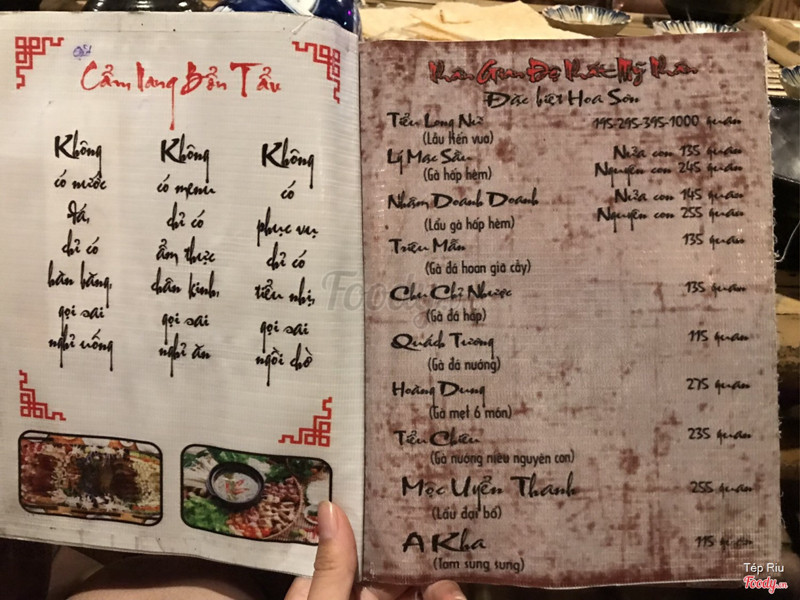 Cẩm Lang Bổn Tẩu
Không
có nước
đá,
chỉ có
hàn băng,
gọi sai
nghỉ uống
Không
có menu
chỉ có
ẩm thực
chân kinh,
gọi sai
nghỉ ăn
Không
có
phục vụ
chỉ có
tiểu nhị,
gọi sai
ngồi chờ
Đặc biệt Hoa Sơn
Tiểu Long Nữ 195-295-395-1000 quan
(Lẩu kền vua)
Lý Mạc Sầu Nửa con 135 quan
(Gà hấp hèm) Nguyên con 245 quan
Nhậm Doanh Doanh Nửa con 145 quan
(Lẩu gà hấp hèm) Nguyên con 255 quan
Triệu Mẫn 135 quan
(Gà đá hoan giả cầy)
Chu Chỉ Nhược 135 quan
(Gà đá hấp)
Quách Tương 115 quan
(Gà đá nướng)
Hoàng Dung 275 quan
(Gà mẹt 6 món)
Tiểu Chiêu 235 quan
(Gà nướng niêu nguyên con)
Mộc Uyển Thanh 255 quan
(Lẩu đại bổ)
A Kha 115 quan
(Tam sùng sung)
Foody
Tép Riu
Foody.vn